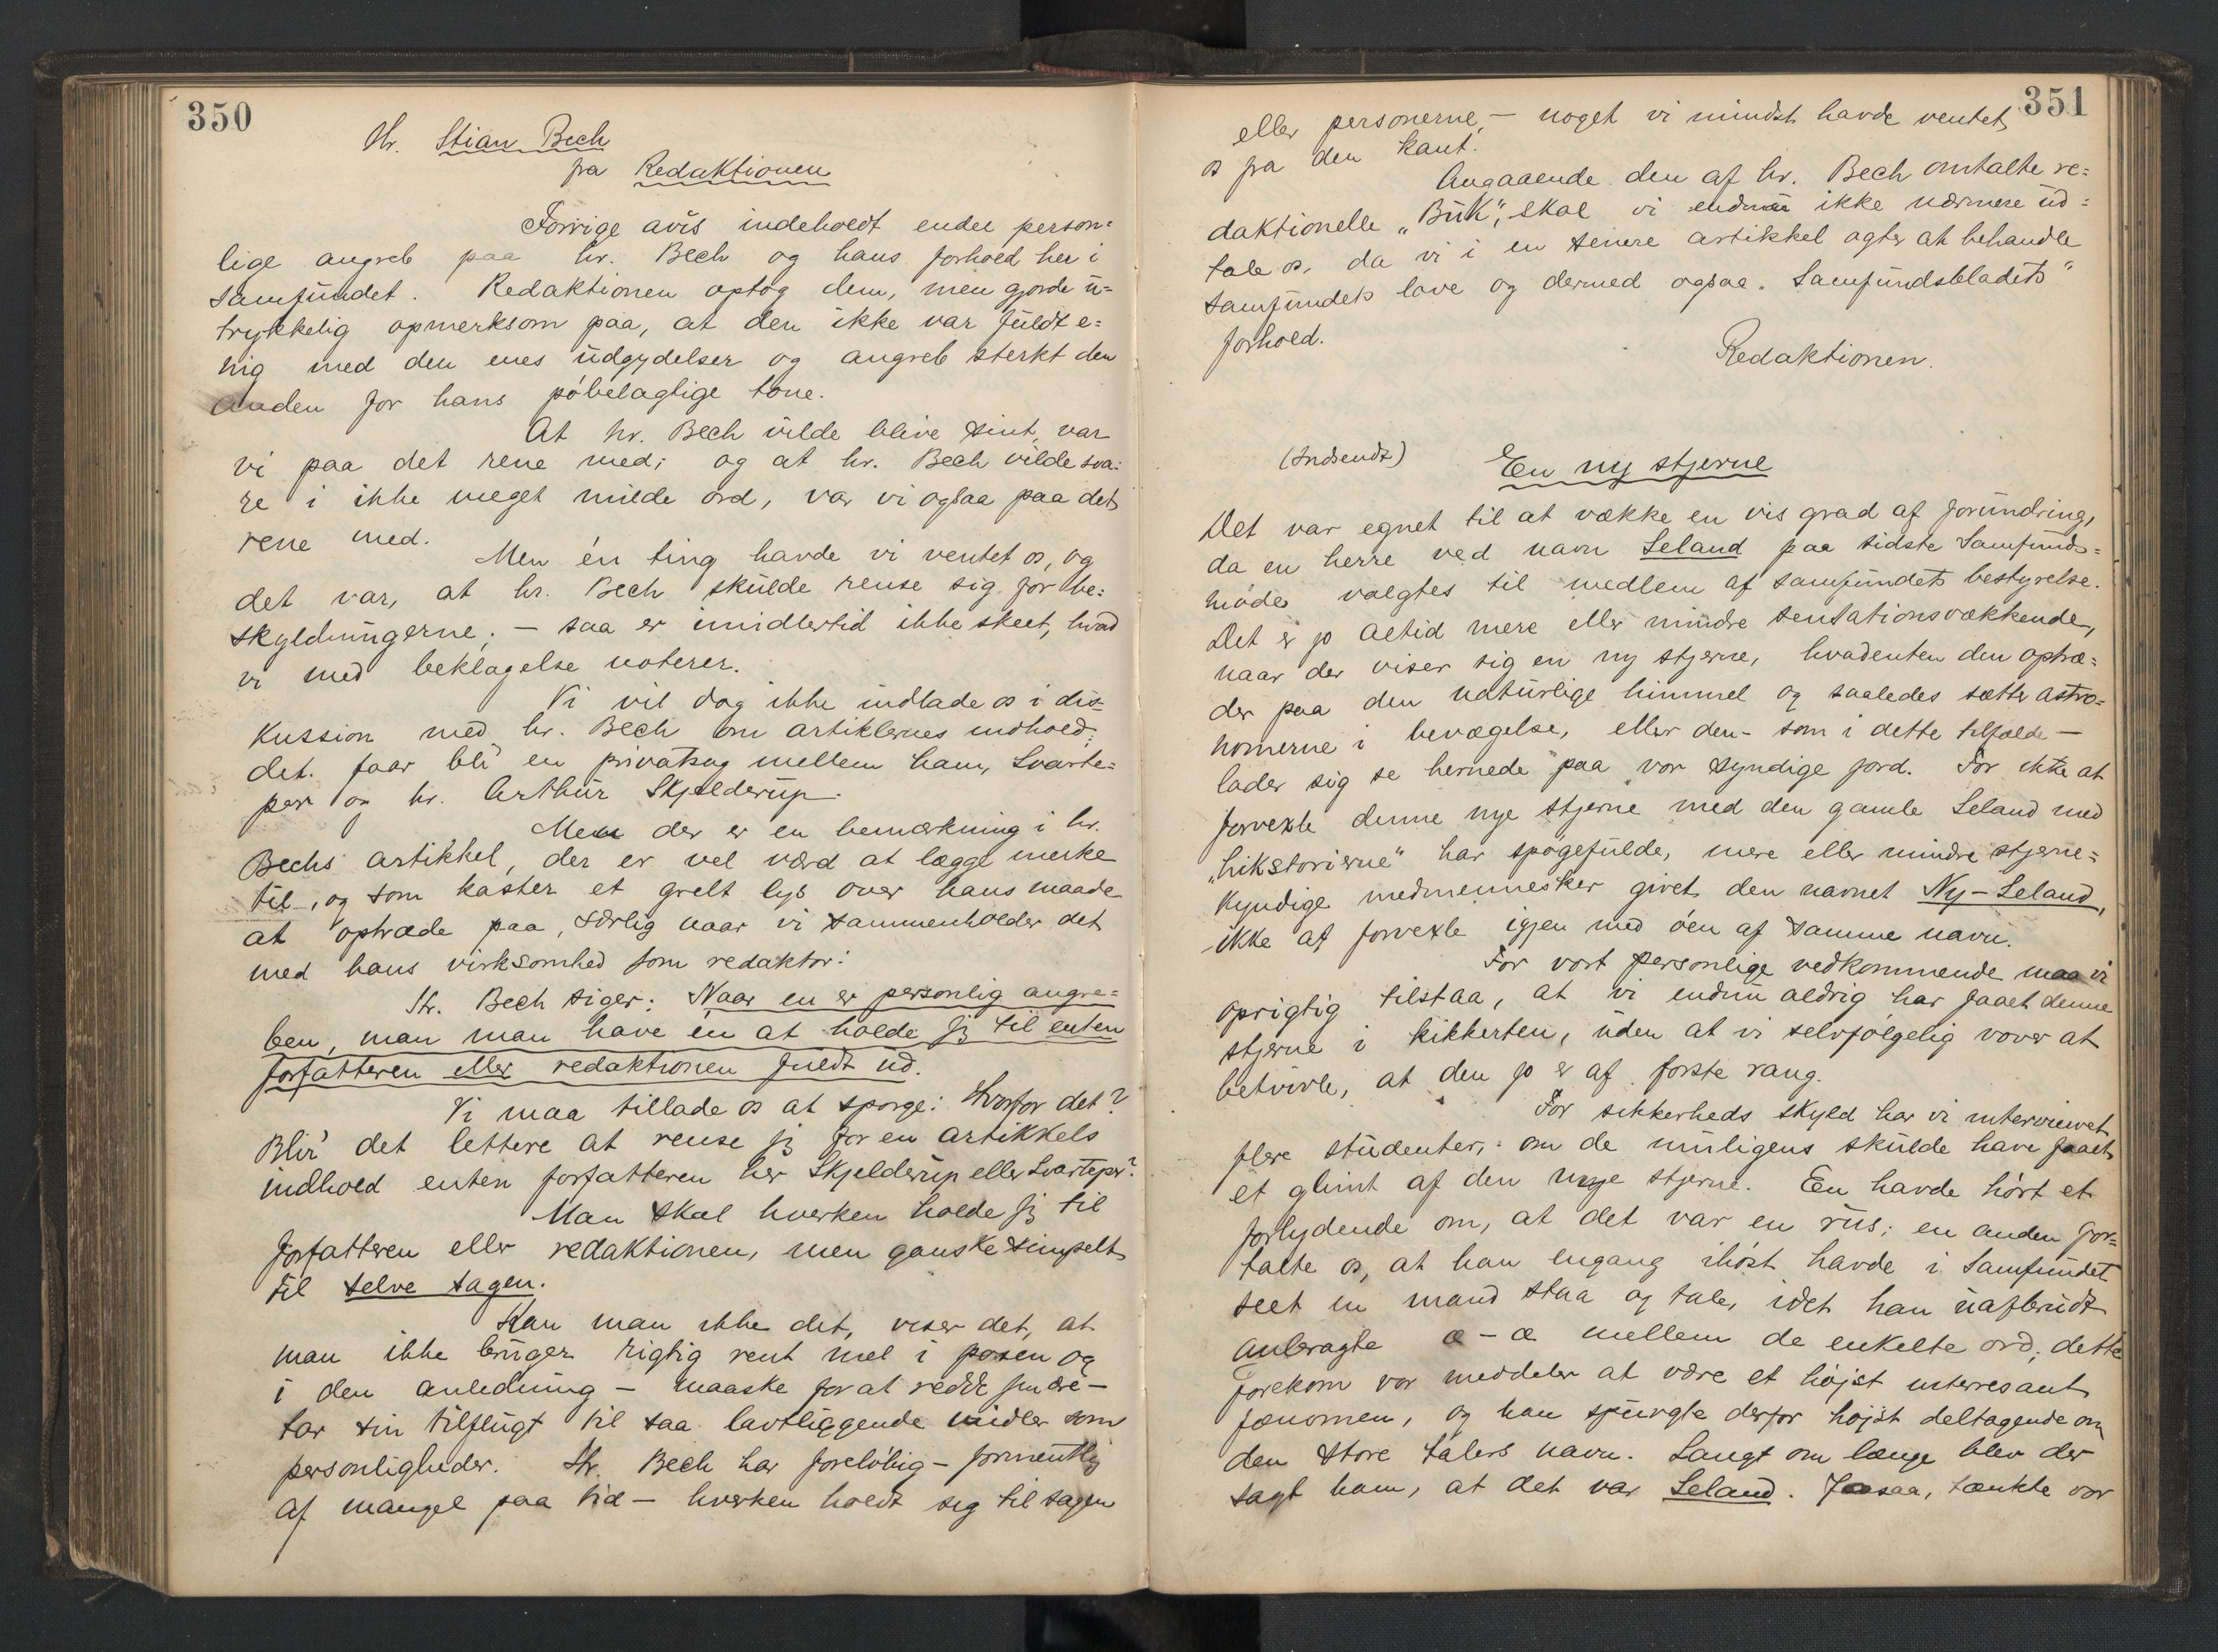 350
Hr. Stian Bech
fra Redaktionen
Forrige avis indeholdt endel person=
lige angreb paa hr. Bech og hans forhold her i
samfundet. Redaktionen optog dem, men gjorde u=
trykkelig opmerksom paa, at den ikke var fuldt e=
nig med den enes udgydelser og angreb sterkt den
anden for hans pöbelagtige tone.
At hr. Bech vilde blive sint, var
vi paa det rene med; og at hr. Bech vilde sva=
re i ikke meget milde ord, var vi ogsaa paa det
rene med.
Men én ting havde vi ventet os, og
det var, at hr. Bech skulde rense sig for be=
skyldningerne; – saa er imidlertid ikke skeet, hvad
vi med beklagelse noterer.
Vi vil dog ikke indlade os i dis=
kussion med hr. Bech om artiklernes indhold;
det faar bli' en privatsag mellem ham, Svarte=
per og hr. Arthur Skjelderup.
Men der er en bemærkning i hr.
Bechs artikkel, der er vel værd at lægge merke
til, og som kaster et grelt lys over hans maade
at optræde paa, særlig naar vi sammenholder det
med hans virksomhed som redaktør:
Hr. Bech siger: Naar en er personlig angre=
ben, maa man have en at holde sig til enten
forfatteren eller redaktionen fuldt ud.
Vi maa tillade os at sporge: Hvorfor det?
Blir' det lettere at rense sig for en artikkels
indhold enten forfatteren her Skjelderup eller Svarteper?
Man skal hverken holde sig til
forfatteren eller redaktionen, men ganske simpelt
til selve sagen.
Kan man ikke det, viser det, at
man ikke bruger rigtig rent mel i posen og
i den anledning – maaske for at redde sin ære –
tar sin tilflugt til saa lavtliggende midler som
personligheder. Hr. Bech har foreløbig – formentlig
af mangel paa tid – hverken holdt sig til sagen
351
eller personerne, – noget vi mindst havde ventet
os fra den kant.
Angaaende den af hr. Bech omtalte re=
daktionelle "Buk", skal vi endnu ikke nærmere ud=
tale os, da vi i en senere artikkel agter at behandle
samfundets love og dermed ogsaa "Samfundsbladets"
forhold.
Redaktionen.
(Indsendt)
En ny stjerne
Det var egnet til at vække en vis grad af forundring,
da en herre ved navn Leland paa sidste Samfunds=
møde valgtes til medlem af samfundets bestyrelse.
Det er jo altid mere eller mindre sensationsvækkende,
naar der viser sig en ny stjerne, hvadenten den optræ=
der paa den naturlige himmel og saaledes sætter astro=
nomerne i bevægelse, eller den – som i dette tilfælde –
lader sig se hernede paa vor syndige jord. For ikke at
forvexle denne nye stjerne med den gamle Leland med
"hikstorierne" har spøgefulde, mere eller mindre stjerne=
kyndige medmennesker givet den navnet Ny-Leland,
ikke at forvexle igjen med öen af samme navn.
For vort personlige vedkommende maa vi
oprigtig tilstaa, at vi endnu aldrig har faaet denne
stjerne i kikkerten, uden at vi selvfølgelig vover at
betvivle, at den jo er af første rang.
For sikkerheds skyld har vi interviewet
flere studenter, om de muligens skulde have faaet
et glimt af den nye stjerne. En havde hørt et
forlydende om, at det var en rus; en anden for=
talte os, at han engang ihøst havde i Samfundet
seet en mand staa og tale, idet han uafbrudt
anbragte æ – æ mellem de enkelte ord; dette
forekom vor meddeler at være et højst interresant
fænomen, og han spurgte derfor højst deltagende om
den store talers navn. Langt om længe blev der
sagt ham, at det var Leland. Jasaa, tænkte vor